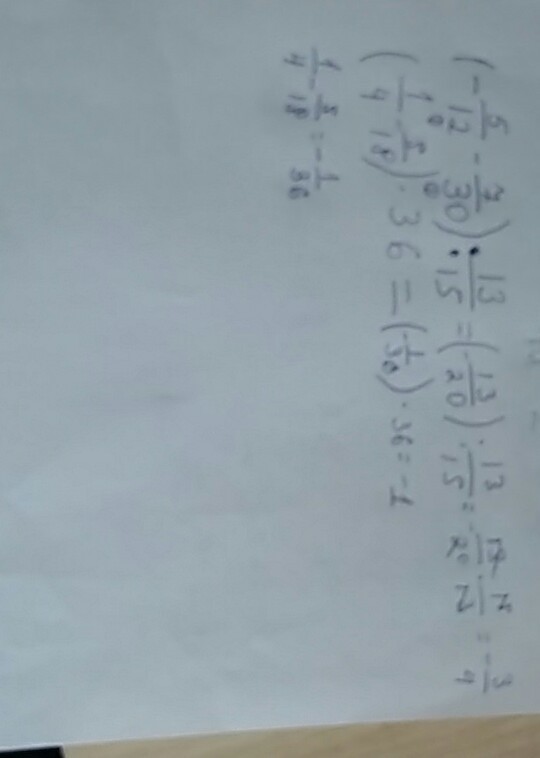 (-5/12 - 7/30) : 13/15 = (-13/20) · 13/15 = - 13/20 · = - 3/4
(1/4 - 5/18) · 36 = (-1/36) · 36 = -1
1/4 - 5/18 = -1/36